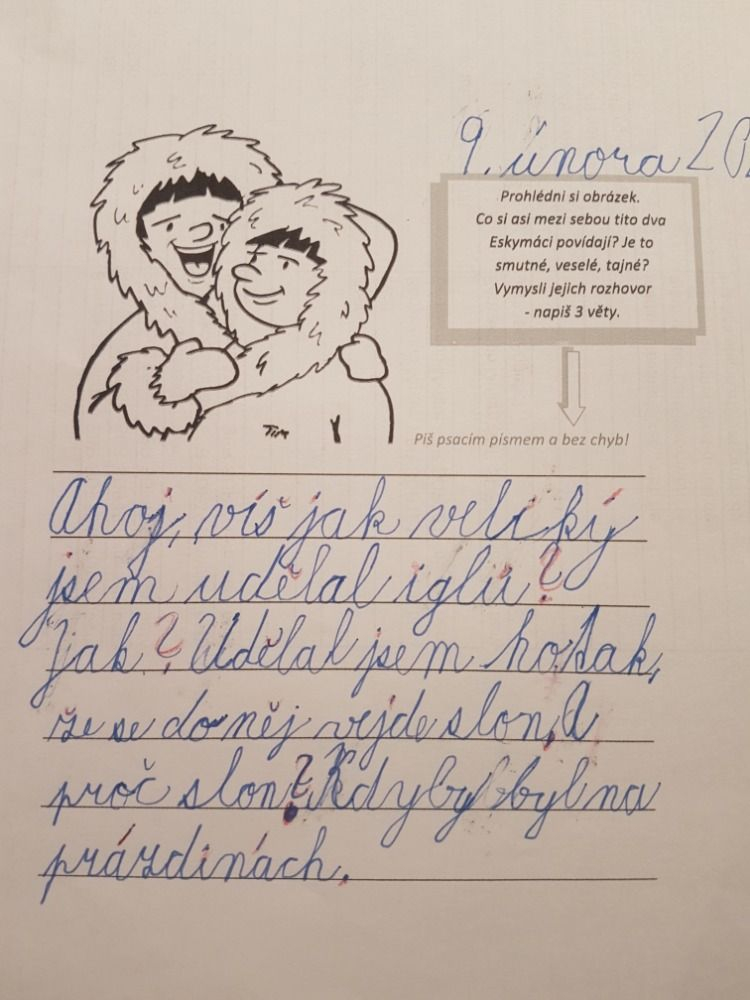 9. února 20
Prohlédni si obrázek.
Co si asi mezi sebou tito dva
Eskymáci povídají? Je to
smutné, veselé, tajné?
Vymysli jejich rozhovor
- napiš 3 věty.
Tim
Piš psacím písmem a bez chyb!
Ahoj, víš jak veliký
jsem udělal iglú?
Jak? Udělal jsem ho tak,
že se do něj vejde slon. A
proč slon? Kdyby byl na
prázdinách.